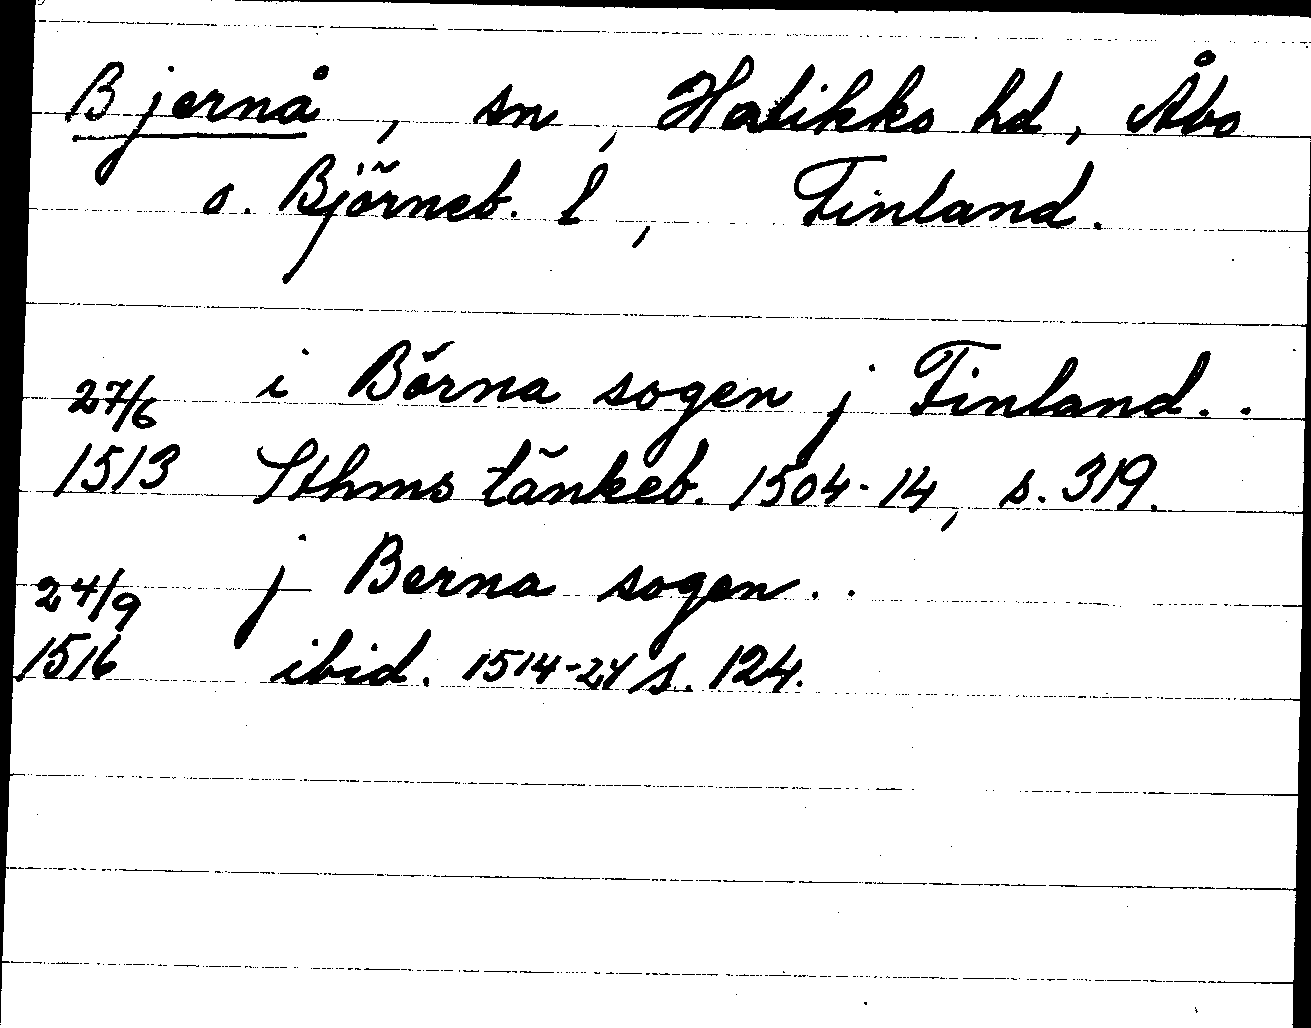 Bjernå, sn, Halikko hd, Åbo
o. Björneb. l, Finland.
27/6 i Börna sogen j Finland..
1513 Sthms tänkeb. 1504-14, s. 319.
24/9 j Berna sogen..
1516 ibid. 1514-24 s. 124.